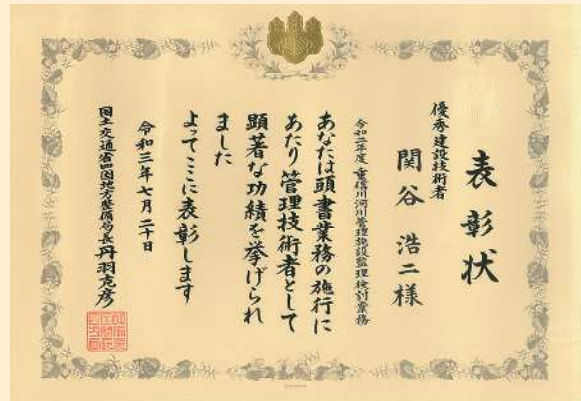 表彰状
優秀建設技術者
関谷浩二様
令和二年度 重信川河川管理施設監理検討業務
あなたは頭書業務の施行に
あたり管理技術者として
顕著な功績を挙げられ
ました
よってここに表彰します
令和三年七月二十日
国土交通省四国地方整備局長 丹羽克彦